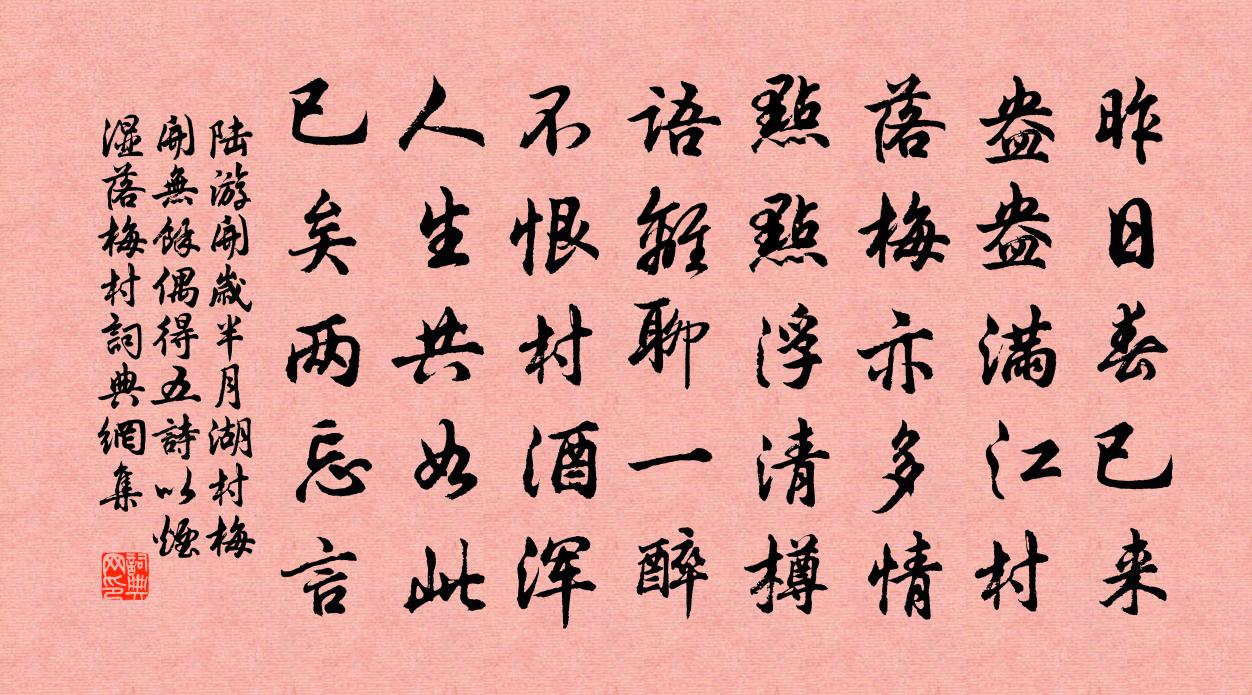 昨日春已来
盎盎满江村
落梅亦多情
點點浮清樽
语離聊一醉
不恨村酒浑
人生共如此
已矣两忘言
陆游開歲半月湖村梅
開無餘偶得五詩以煙
湿落梅村詞典網集
詞典网印